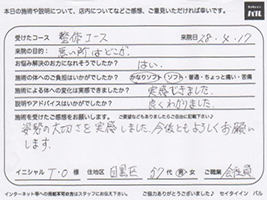 本日の施術や説明について、店内についてなどご感想、ご意見いただければ幸いです。
パル
受けたコース 整体コース 来院日 28.4.17
来院の目的: 悪い所はどこか
お悩み解決のお力になれそうでしたか? はい。
施術の体へのご負担はいかがでしたか? かなりソフト・ソフト・普通・ちょっと痛い・苦痛
施術による体への変化は実感できましたか? 実感できました
説明やアドバイスはいかがでしたか? 良くわかりました
施術を受けてのご感想、ご意見などお願いします。
姿勢の大切さを実感しました。今後ともよろしくお願い
します。
イニシャル T・O 様 住地区 目黒区 57代 男・女 ご職業 会社員
インターネット等への掲載希望の方はスタッフにお伝え下さい。 ご協力ありがとうございました セイタイイン パル